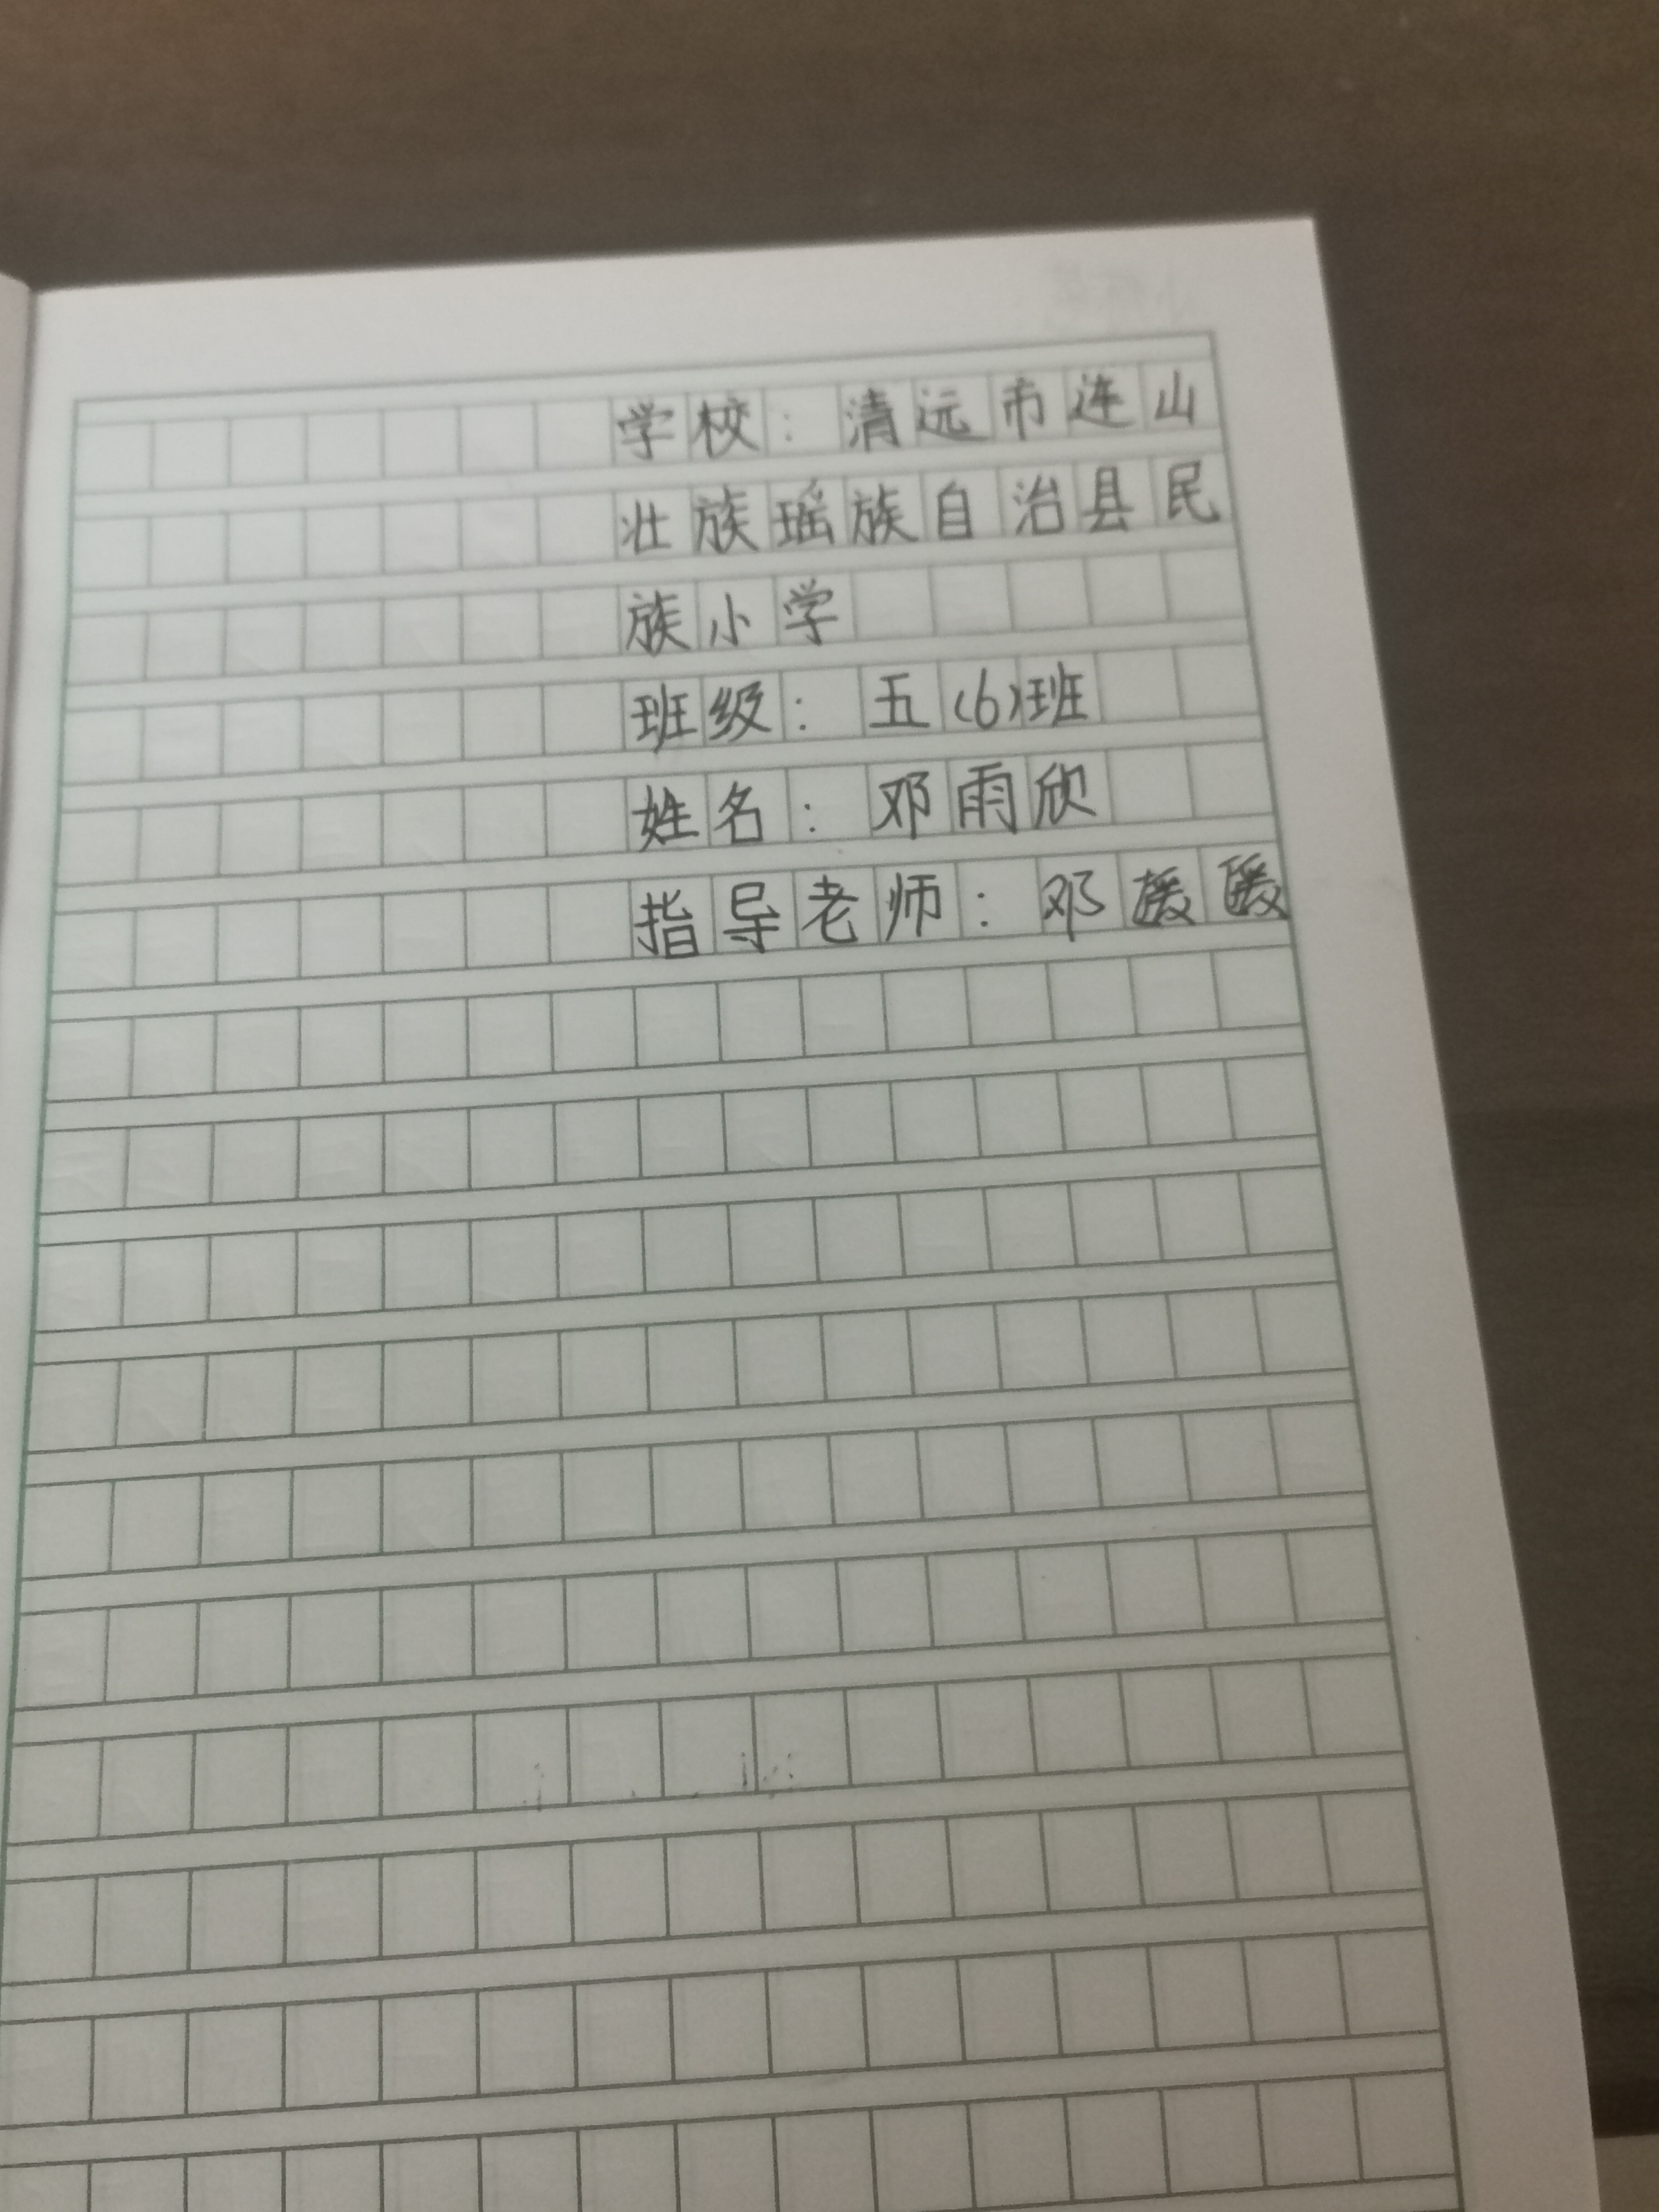 学校：清远市连山
壮族瑶族自治县民
族小学
班级：五（6）班
姓名：邓雨欣
指导老师：邓媛媛